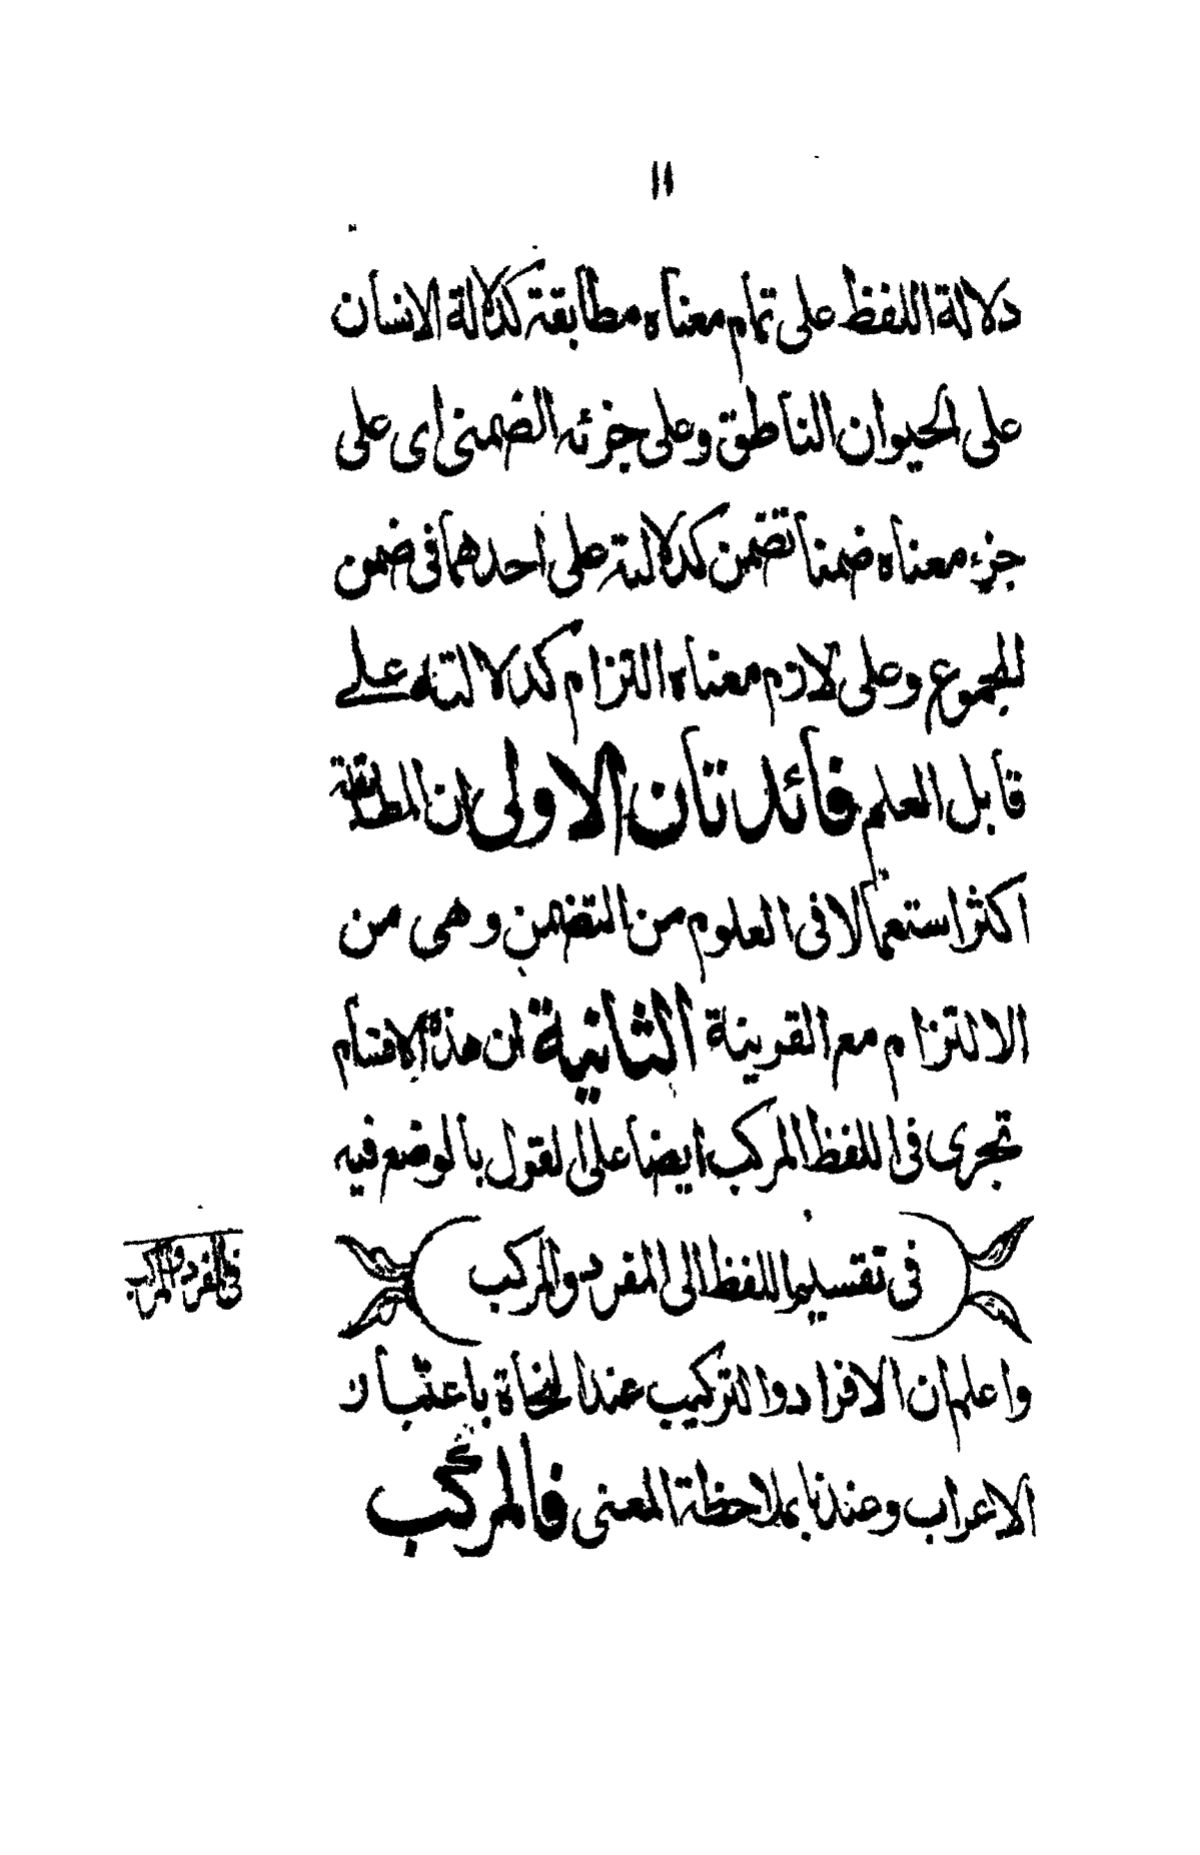 ١١
دلالة اللفظ على تمام معناه مطابقة كدلالة الانسان
على الحيوان الناطق وعلى جزئه الضمنى اى على
جزء معناه ضمنا تضمن كدلالته على احدهما فى ضمن
المجموع وعلى لازم معناه التزام كدلالته على
قابل العلم فائدتان الاولى ان المطابقة
اكثر استعمالا فى العلوم من التضمن وهى من
الالتزام مع القرينة الثانية ان هذه الاقسام
تجرى فى اللفظ المركب ايضا على القول بالوضع فيه
فى تقسيم اللفظ الى المفرد والمركب
فى المفرد والمركب
واعلم ان الافراد والتركيب عند النحاة باعتبار
الاعراب وعندنا بملاحظة المعنى فالمركب